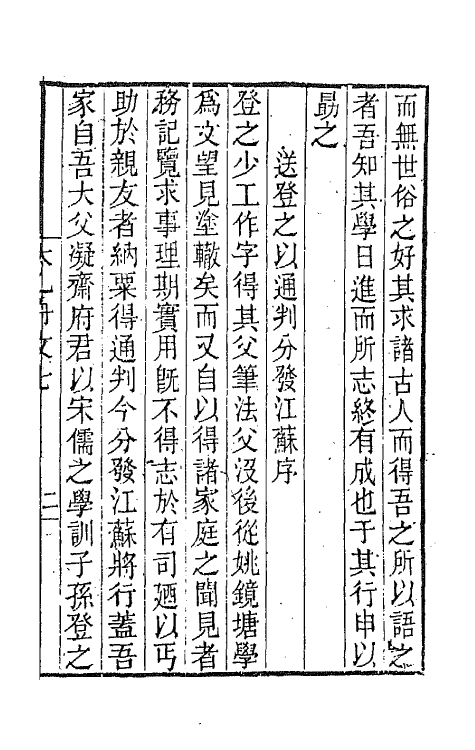 而無世俗之好其求諸古人而得吾之所以語之
者吾知其學日進而所志終有成也于其行申以
勗之
送登之以通判分發江蘇序
登之少工作字得其父筆法父沒後從姚鏡塘學
爲文望見塗轍矣而又自以得諸家庭之聞見者
務記覽求事理期實用旣不得志於有司廼以丐
助於親友者納粟得通判今分發江蘇將行蓋吾
家自吾大父凝齋府君以宋儒之學訓子孫登之
二